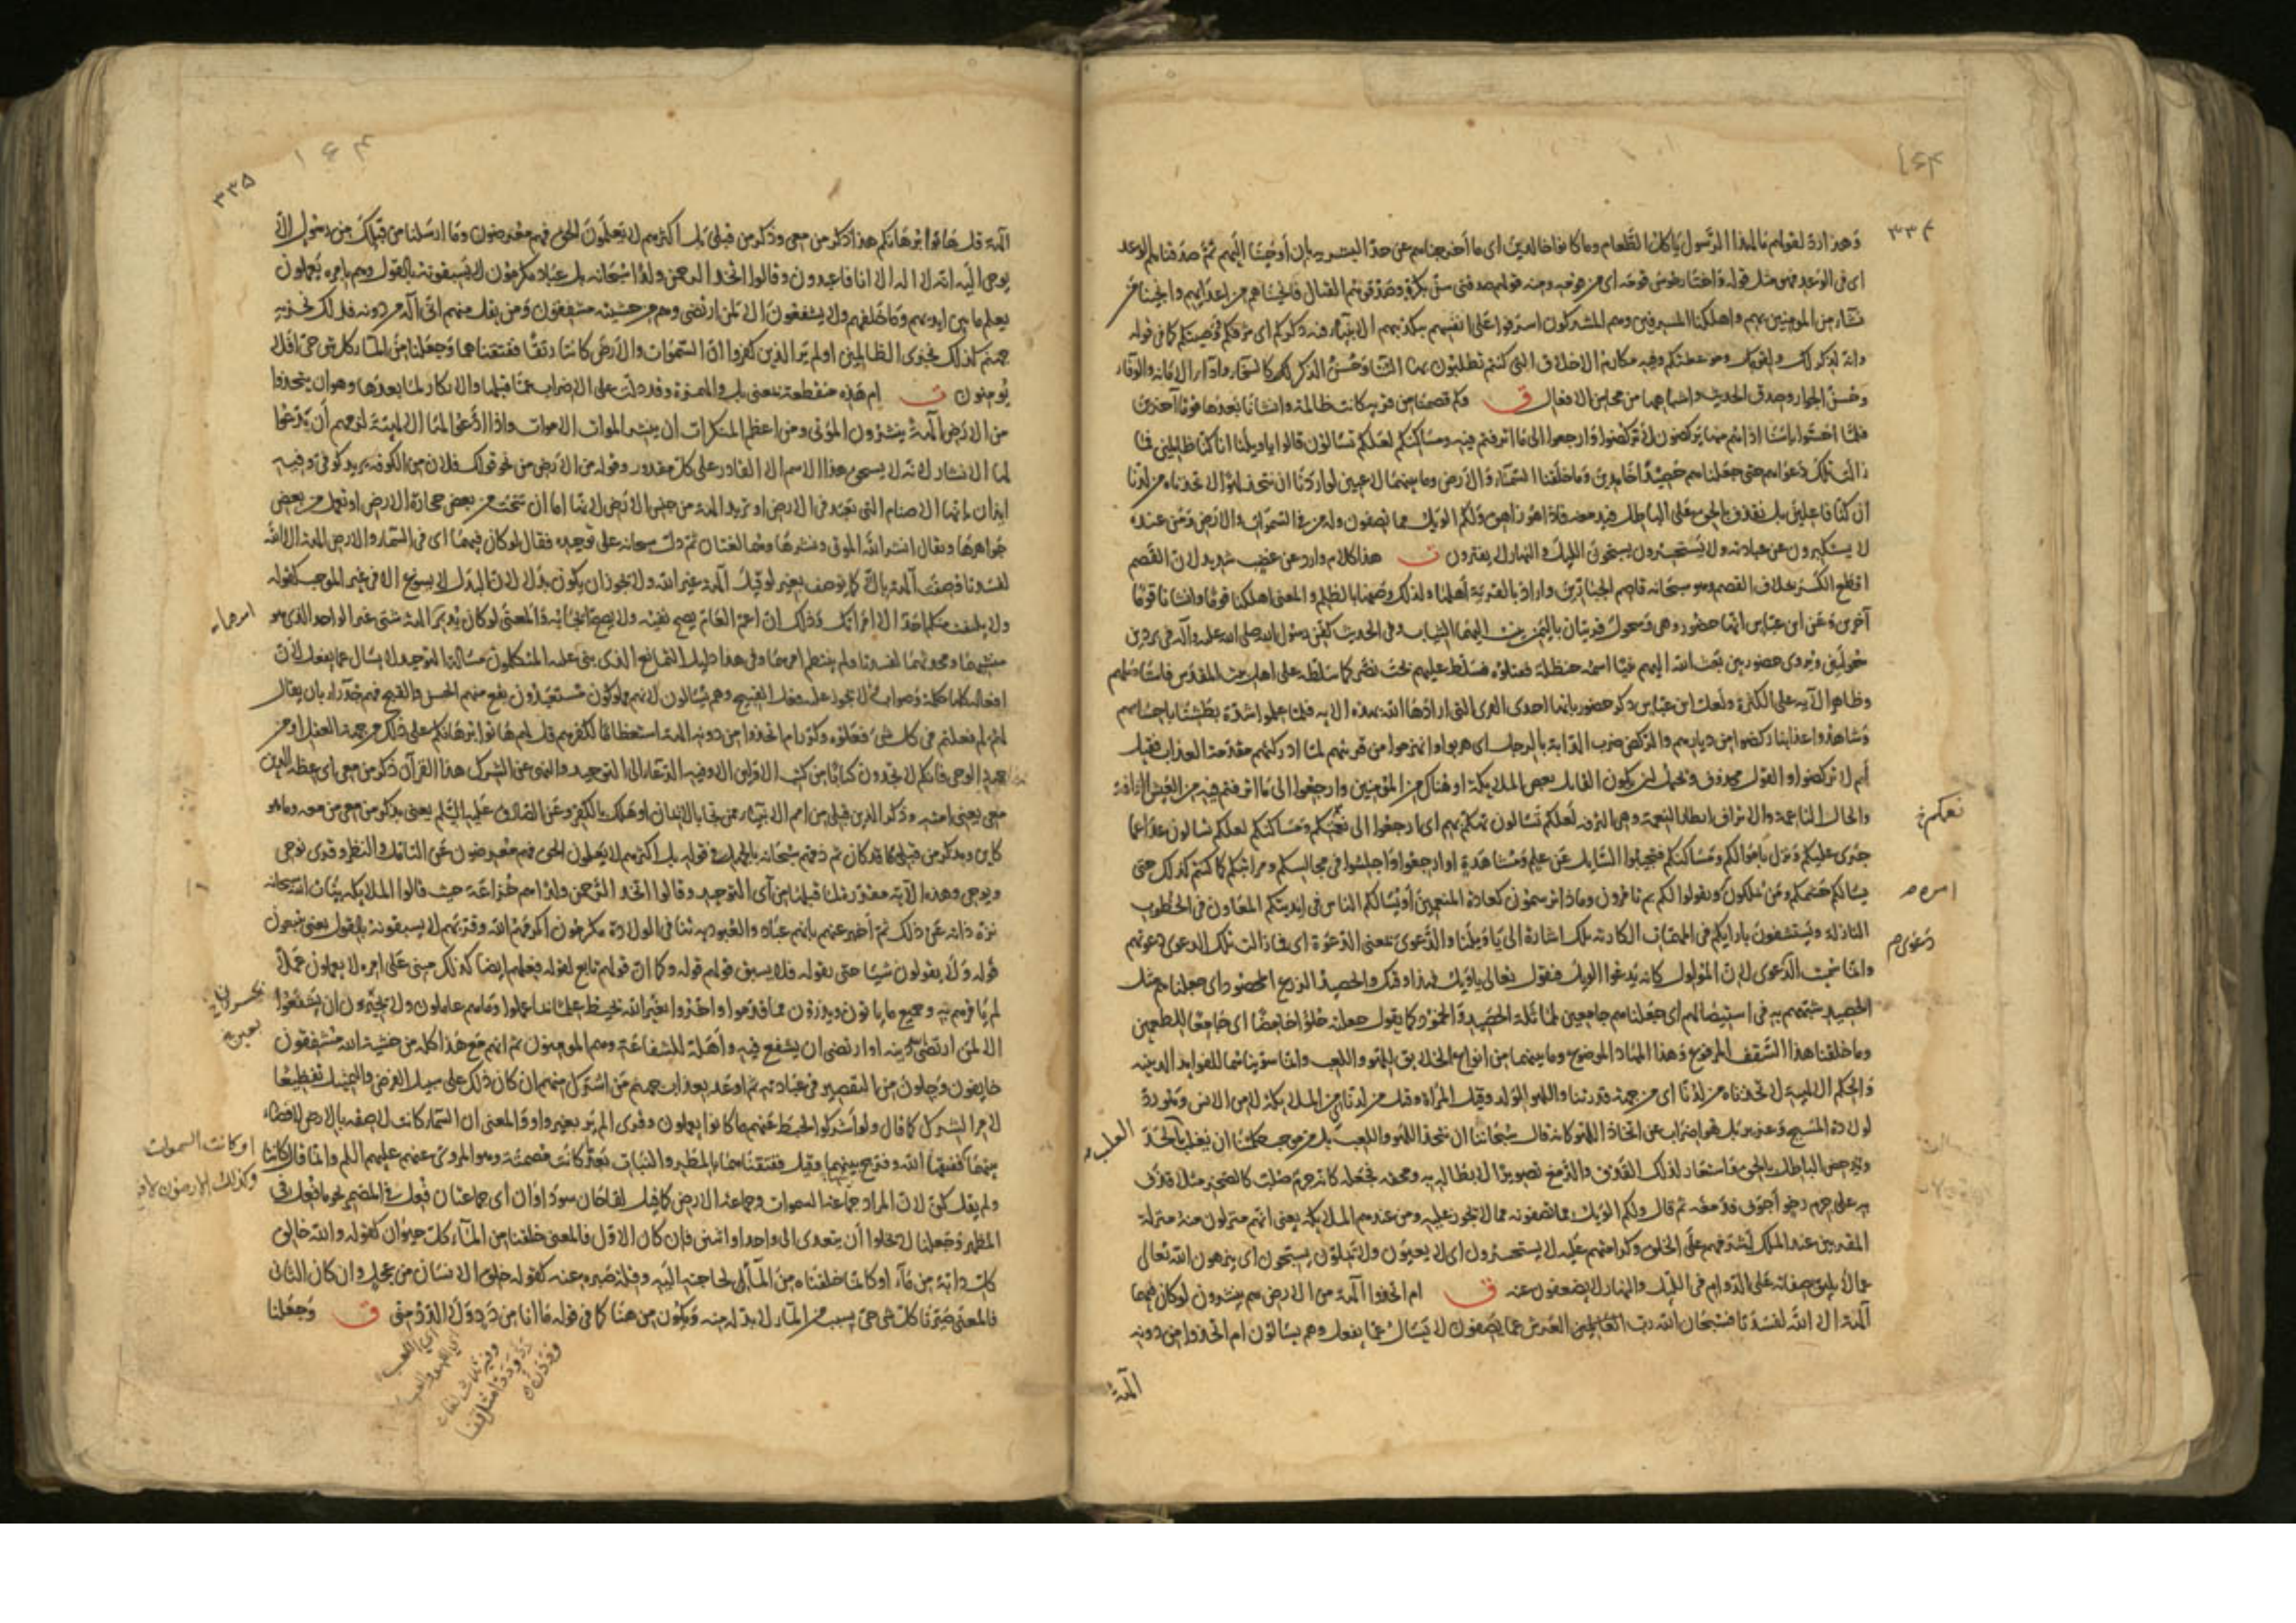 ٣٣٤
وهذا رد لقولهم مال هذا الرسول يأكل الطعام وما كانوا خالدين اى ما أخرجناهم عن حد البشرية بان أوحينا اليهم ثم صدقناهم الوعد
اى فى الوعد فهو مثل قوله واختار موسى قومه اى من قومه ومنه قولهم صدقنى سن بكره وصدقوهم القتال فانجيناهم من اعدائهم وانجينا من
نشاء من المؤمنين بهم واهلكنا المسرفين وهم المشركون اسرفوا على انفسهم بتكذيبهم الانبياء فيه ذكركم اى شرفكم وصيتكم كما فى قوله
وانه لذكر لك ولقومك وموعظتكم وفيه مكارم الاخلاق التى كنتم تطلبون بها الثناء وحسن الذكر كالسخاء واداء الامانة والوفاء
وحسن الجوار وصدق الحديث واشباهها من محاسن الافعال ق وكم قصمنا من قرية كانت ظالمة وانشأنا بعدها قوما آخرين
فلما احسوا بأسنا اذا هم منها يركضون لا تركضوا وارجعوا الى ما اترفتم فيه ومساكنكم لعلكم تسألون قالوا يا ويلنا انا كنا ظالمين فما
زالت تلك دعواهم حتى جعلناهم حصيدا خامدين وما خلقنا السماء والارض وما بينهما لاعبين لو اردنا ان نتخذ لهوا لاتخذناه من لدنا
ان كنا فاعلين بل نقذف بالحق على الباطل فيدمغه فاذا هو زاهق ولكم الويل مما تصفون وله من فى السموات والارض ومن عنده
لا يستكبرون عن عبادته ولا يستحسرون يسبحون الليل والنهار لا يفترون ت هذا كلام وارد عن غضب شديد لان القصم
افظع الكسر بخلاف الفصم وهو سبحانه قاصم الجبارين واراد بالقرية أهلها ولذلك وصفها بالظلم والمعنى اهلكنا قوما وانشأنا قوما
آخرين وعن ابن عباس انها حضور وهى وسحول قريتان باليمن ينسب اليهما الثياب وفى الحديث كفن رسول الله صلى الله عليه وآله فى بردين
سحوليين ويروى حضوريين بعث الله اليهم نبيا اسمه حنظلة فقتلوه فسلط عليهم بخت نصر كما سلطه على اهل بيت المقدس فاستأصلهم
وظاهر الآية على الكثرة ولعل ابن عباس ذكر حضور بانها احدى القرى التى ارادها الله بهذه الآية فلما علموا شدة بطشنا باحساسهم
وشاهدوا عذابنا ركضوا من ديارهم والركض ضرب الدابة بالرجل اى هربوا وانهزموا من قريتهم لما ادركتهم مقدمة العذاب فقيل
لهم لا تركضوا والقول محذوف ويحتمل ان يكون القائل بعض الملائكة او هناك من المؤمنين وارجعوا الى ما اترفتم فيه من العيش الرافه
والحال الناعمة والاتراف ابطار النعمة وهى الترفه لعلكم تسألون تهكم بهم اى ارجعوا الى نعيمكم ومساكنكم لعلكم تسألون غدا عما
نعمكم خ
جرى عليكم ونزل باموالكم ومساكنكم فتجيبوا السائل عن علم ومشاهدة او ارجعوا واجلسوا فى مجالسكم ومراتبكم كما كنتم كذلك حتى
يسألكم حشمكم ومن تملكون ويقولوا لكم بم تأمرون وماذا ترسمون كعادة المنعمين أو يسألكم الناس فى انديتكم المعاون فى الخطوب
امره
النازلة ويستشفون بآرائكم فى المهمات الكارثة تلك اشارة الى يا ويلنا والدعوى بمعنى الدعوة اى فما زالت تلك الدعوى دعوتهم
دعوىهم
وانما سميت الدعوى لان المولول كانه يدعوا الويل فيقول تعالى يا ويل فهذا وقتك والحصيد الزرع المحصود اى جعلناهم مثل
الحصيد شبههم به فى استيصالهم اى جعلناهم جامعين لمماثلة الحصيد والخمود كما يقول جعلته حلوا حامضا اى جامعا للطعمين
وما خلقنا هذا السقف المرفوع وهذا المهاد الموضوع وما بينهما من انواع الخلايق للهو واللعب وانما سويناهما للفوايد الدينيه
والحكم الالهية لاتخذناه من لدنا اى من جهة قدرتنا واللهو الولد وقيل المرأة وقيل من لدنا من الملائكة لا من الانس وهو رد
لولادة المسيح وعزير بل هو اضراب عن اتخاذ اللهو كانه قال سبحاننا ان نتخذ اللهو واللعب بل من موجب حكمتنا ان نغلب الجد
وندحض الباطل بالحق فاستعار لذلك القذف والدمغ تصويرا لابطاله به ومحقه فجعله كانه جرم صلب كالصخرة مثلا قذف
به على جرم رخو أجوف فدمغه ثم قال ولكم الويل مما تصفونه مما لا يجوز عليه ومن عنده هم الملائكة يعنى انهم منزلون منه منزلة
المقربين عند الملك لشرفهم على الخلق وكرامتهم عليه لا يستحسرون اى لا يعيون ولا يملون يسبحون اى ينزهون الله تعالى
عما لا يليق بصفاته على الدوام فى الليل والنهار لا يضعفون عنه ق ام اتخذوا آلهة من الارض هم ينشرون لو كان فيهما
آلهة الا الله لفسدتا فسبحان الله رب العرش عما يصفون لا يسأل عما يفعل وهم يسألون ام اتخذوا من دونه
آلهة
٣٣٥
آلهة قل هاتوا برهانكم هذا ذكر من معى وذكر من قبلى بل اكثرهم لا يعلمون الحق فهم معرضون وما ارسلنا من قبلك من رسول الا
يوحى اليه انه لا اله الا انا فاعبدون وقالوا اتخذ الرحمن ولدا سبحانه بل عباد مكرمون لا يسبقونه بالقول وهم بامره يعملون
يعلم ما بين ايديهم وما خلفهم ولا يشفعون الا لمن ارتضى وهم من خشيته مشفقون ومن يقل منهم انى اله من دونه فذلك نجزيه
جهنم كذلك نجزى الظالمين اولم ير الذين كفروا ان السموات والارض كانتا رتقا ففتقناهما وجعلنا من الماء كل شئ حى افلا
يؤمنون ت ام هذه منقطعة بمعنى بل والهمزة وقد دلت على الاضراب عما قبلها والانكار لما بعدها وهو ان يتخذوا
من الارض آلهة ينشرون الموتى ومن اعظم المنكرات ان ينشر الموات الاموات واذا ادعوا لها الالهية لزمهم أن يدعوا
لها الانشار لانه لا يستحق هذا الاسم الا القادر على كل مقدور وقوله من الارض من نحو قولك فلان من الكوفه يريد كوفى وفيه
ايذان بانها الاصنام التى تعبد فى الارض او يريد آلهة من جنس الارض لانها اما ان تنحت من بعض حجارة الارض او تعمل من بعض
جواهرها ويقال انشر الله الموتى ونشرها وهما لغتان ثم دل سبحانه على توحيده فقال لو كان فيهما اى فى السماء والارض آلهة الا الله
لفسدتا فوصفت آلهة بالا كما يوصف بغير لو قيل آلهة غير الله ولا يجوز ان يكون بدلا لان البدل لا يسوغ الا فى غير الموجب كقوله
ولا يلتفت منكم احد الا امرأتك وذلك ان اعم العام يصح نفيه ولا يصح ايجابه والمعنى لو كان يدبر امرهما آلهة شتى غير الواحد الذى هو
امرهما
منشيهما ومحدثهما لفسدتا ولم ينتظم امرهما وفى هذا دليل التمانع الذى بنى عليه المتكلمون مسألة التوحيد لا يسأل عما يفعل لان
افعاله كلها حكمة وصواب ولا يجوز عليه فعل القبيح وهم يسألون لانهم مملوكون مستعبدون يقع منهم الحسن والقبيح فهم جدراء بان يقال
لهم لم فعلتم فى كل شئ فعلوه وكرر ام اتخذوا من دونه آلهة استعظاما لكفرهم قل لهم هاتوا برهانكم على ذلك من جهة العقل او من
جهة الوحى فانكم لا تجدون كتابا من كتب الاولين الا وفيه الدعاء الى التوحيد والنهى عن الشرك هذا القرآن ذكر من معى اى عظة الذين
معى يعنى امته وذكر الذين قبلى من امم الانبياء ممن نجا بالايمان او هلك بالكفر وعن الصادق عليه السلم يعنى بذكر من معى من معه وما هو
كاين وبذكر من قبلى ما قد كان ثم ذمهم سبحانه بالجهل فى قوله بل اكثرهم لا يعلمون الحق فهم معرضون عن التامل والنظر وقرى نوحى
ويوحى وهذه الآية مقررة لما قبلها من آى التوحيد وقالوا اتخذ الرحمن ولدا هم خزاعة حيث قالوا الملائكة بنات الله سبحانه
نزه ذاته عن ذلك ثم أخبر عنهم بانهم عباد والعبودية تنافى الولادة مكرمون اكرمهم الله وقربهم لا يسبقونه بالقول يعنى يتبعون
قوله ولا يقولون شيئا حتى يقوله فلا يسبق قولهم قوله وكما ان قولهم تابع لقوله فعلهم ايضا كذلك مبنى على امره لا يعملون عملا
لم يأمرهم به وجميع ما يأتون ويذرون مما قدموا واخروا بعين الله يحيط علما بما عملوا وما هم عاملون ولا يجترءون ان يشفعوا
بعين خ
الا لمن ارتضى دينه او ارتضى ان يشفع فيه واهله للشفاعة وهم المؤمنون ثم انهم مع هذا كله من خشية الله مشفقون
خايفون وجلون من التقصير فى عبادته ثم اوعد بعذاب جهنم من اشرك منهم ان كان ذلك على سبيل الفرض والتمثيل تفظيعا
لامر الشرك كما قال ولو أشركوا لحبط عنهم ما كانوا يعملون وقرى الم ير بغير واو والمعنى ان السماء كانت لاصقه بالارض لا فضاء
بينهما ففتقها الله وفرج بينهما وقيل ففتقناهما بالمطر والنبات بعد ما كانت مصمتة وهو المروى عنهم عليهم السلم وانما قال كانتا
او كانت السموات
وكذلك الارضون لا فرج
ولم يقل كن لان المراد جماعة السموات وجماعة الارض كما قيل لقاحان سوداوان اى جماعتان فعل فى المضمر نحو ما فعل فى
المظهر وجعلنا لا يخلوا أن يتعدى الى واحد او اثنين فان كان الاول فالمعنى خلقنا من الماء كل حيوان كقوله والله خالق
كل دابة من ماء او كانما خلقناه من الماء لحاجته اليه وقلة صبره عنه كقوله خلق الانسان من عجل وان كان الثانى
فالمعنى صيرنا كل شئ حى بسبب من الماء لا بد له منه ويكون من هنا كما فى قوله ما انا من دد ولا الدد منى ق وجعلنا
وفيه ثلاث لغات